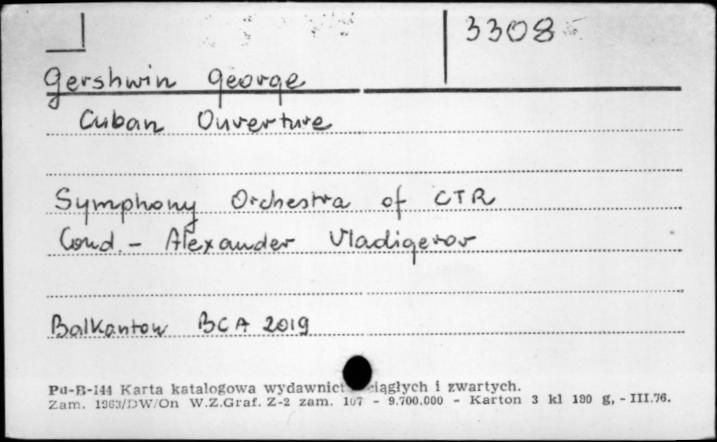 3308
Gershwin George
Cuban Ouverture
Symphony Orchestra of CTR
Cond. - Alexander Vladigerov
Balkanton BCA 2019
Pu-B-144 Karta katalogowa wydawnict ciągłych i zwartych.
Zam. 1963/DW/On W.Z.Graf. Z-2 zam. 107 - 9.700.000 - Karton 3 kl 180 g, - III.76.